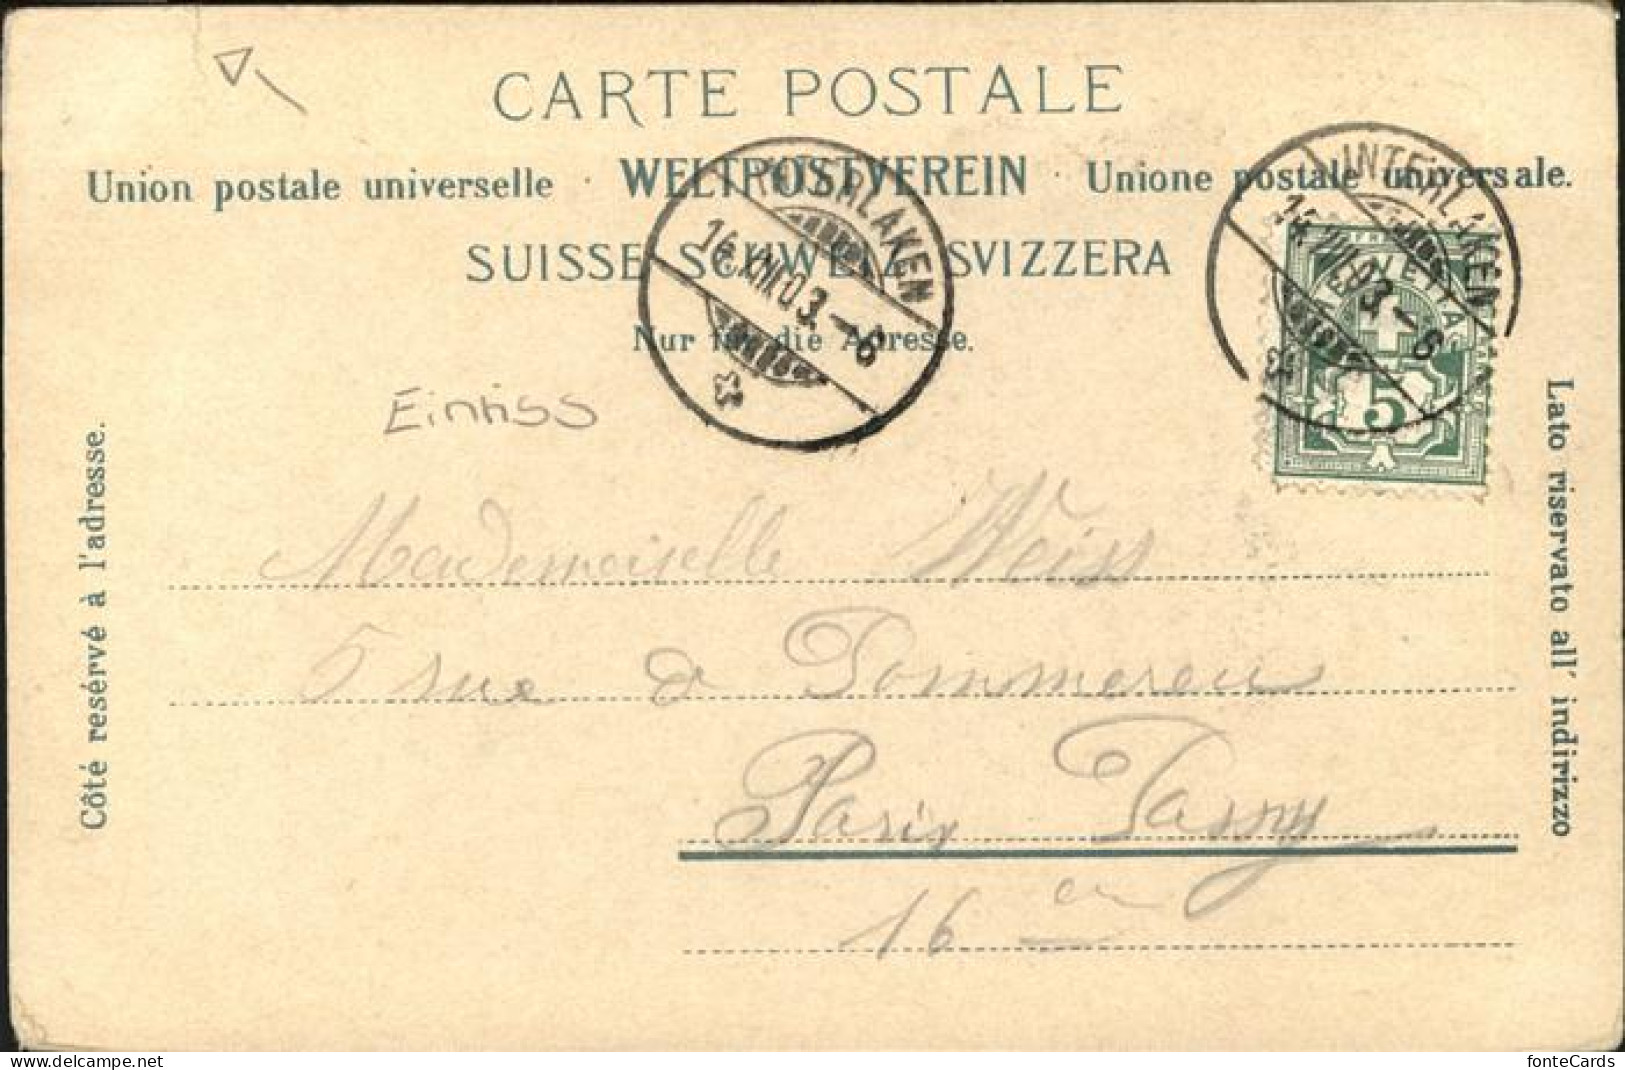 CARTE POSTALE
Union postale universelle · WELTPOSTVEREIN · Unione postale universale.
SUISSE SCHWEIZ SVIZZERA
Nur für die Adresse.
INTERLAKEN
INTERLAKEN
HELVETIA
5
Einriss
Côté resérvé à l'adresse.
Lato riservato all' indirizzo
Mademoiselle Weiss
5 rue de Pommereu
Paris Passy
16
delcampe.net
fonteCards